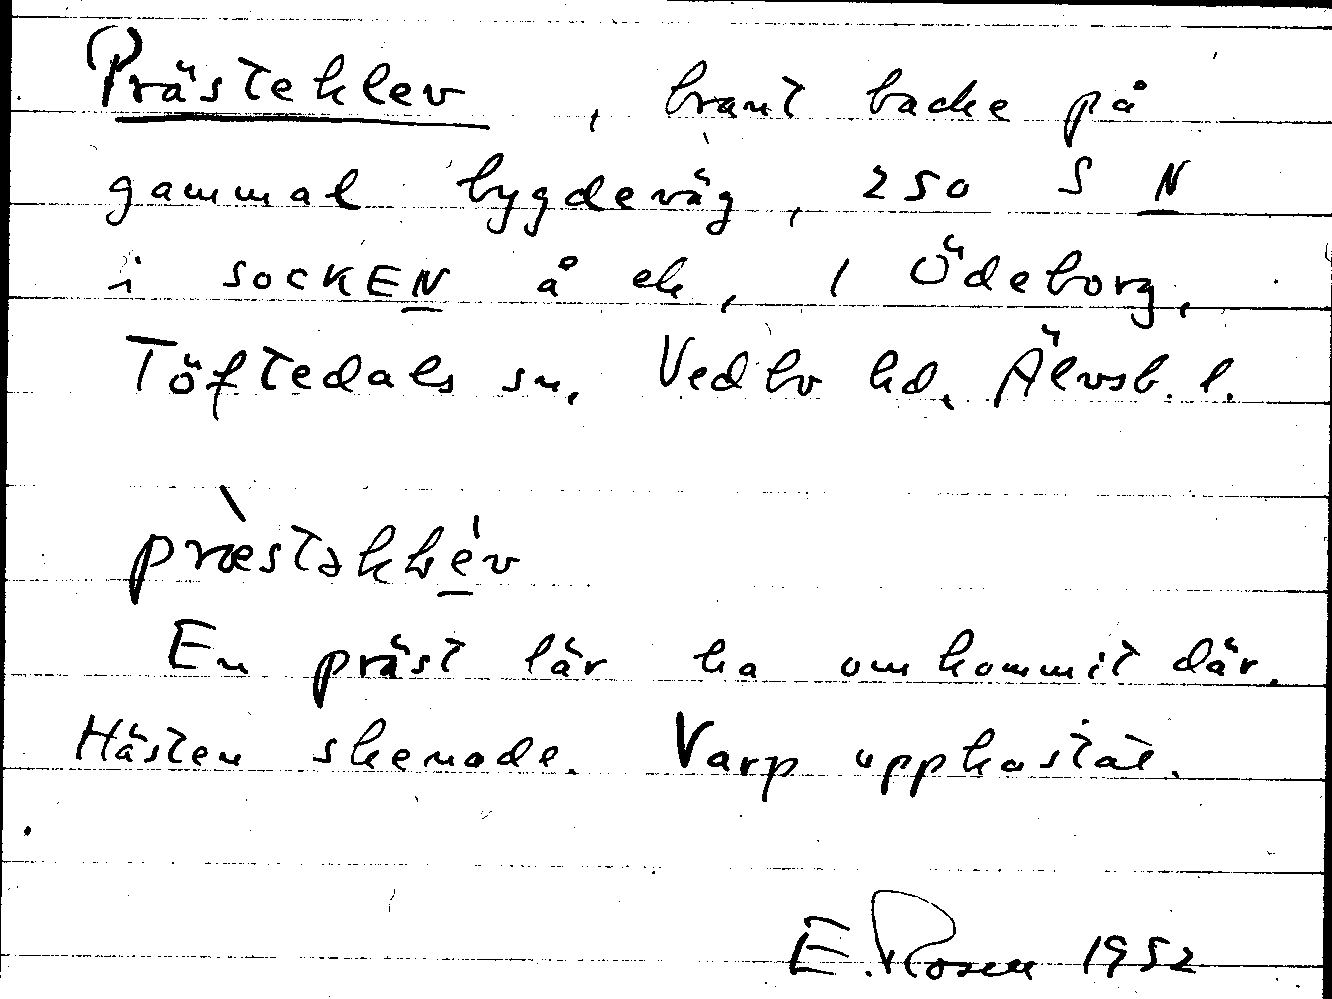 Prästeklev, brant backe på
gammal bygdeväg, 250 S N
i SOCKEN å ek, 1 Ödeborg,
Töftedals sn, Vedbo hd, Älvsb. l.
præ̀stəkle̱ v
En präst lär ha omkommit där.
Hästen skenade. Varp uppkastat.
E. Rosen 1952